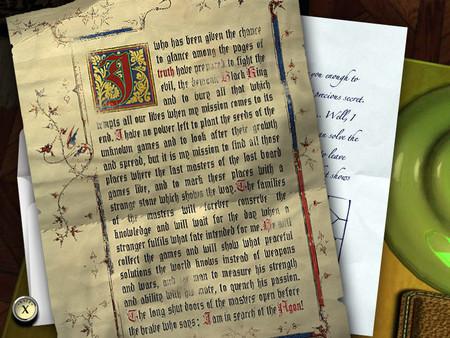 I who has been given the chance
to glance among the pages of
truth have prepared to fight the
evil, the demonic Black King
and to bury all that which
tempts all our likes when my mission comes to its
end. I have no power left to plant the seeds of the
unknown games and to look after their growth
and spread, but it is my mission to find all those
places where the last masters of the lost board
games live, and to mark these places with a
strange stone which shows the way. The families
of the masters will forever conserve the
knowledge and will wait for the day when a
stranger fulfils what fate intended for me. He will
collect the games and will show what peaceful
solutions the world knows instead of weapons
and wars, and one man to measure his strength
and ability with his mate, to quench his passion.
The long shut doors of the masters open before
the brave who says: I am in search of the Agon!
you enough to
precious secret.
... Well, I
can solve the
to leave
t shows
X